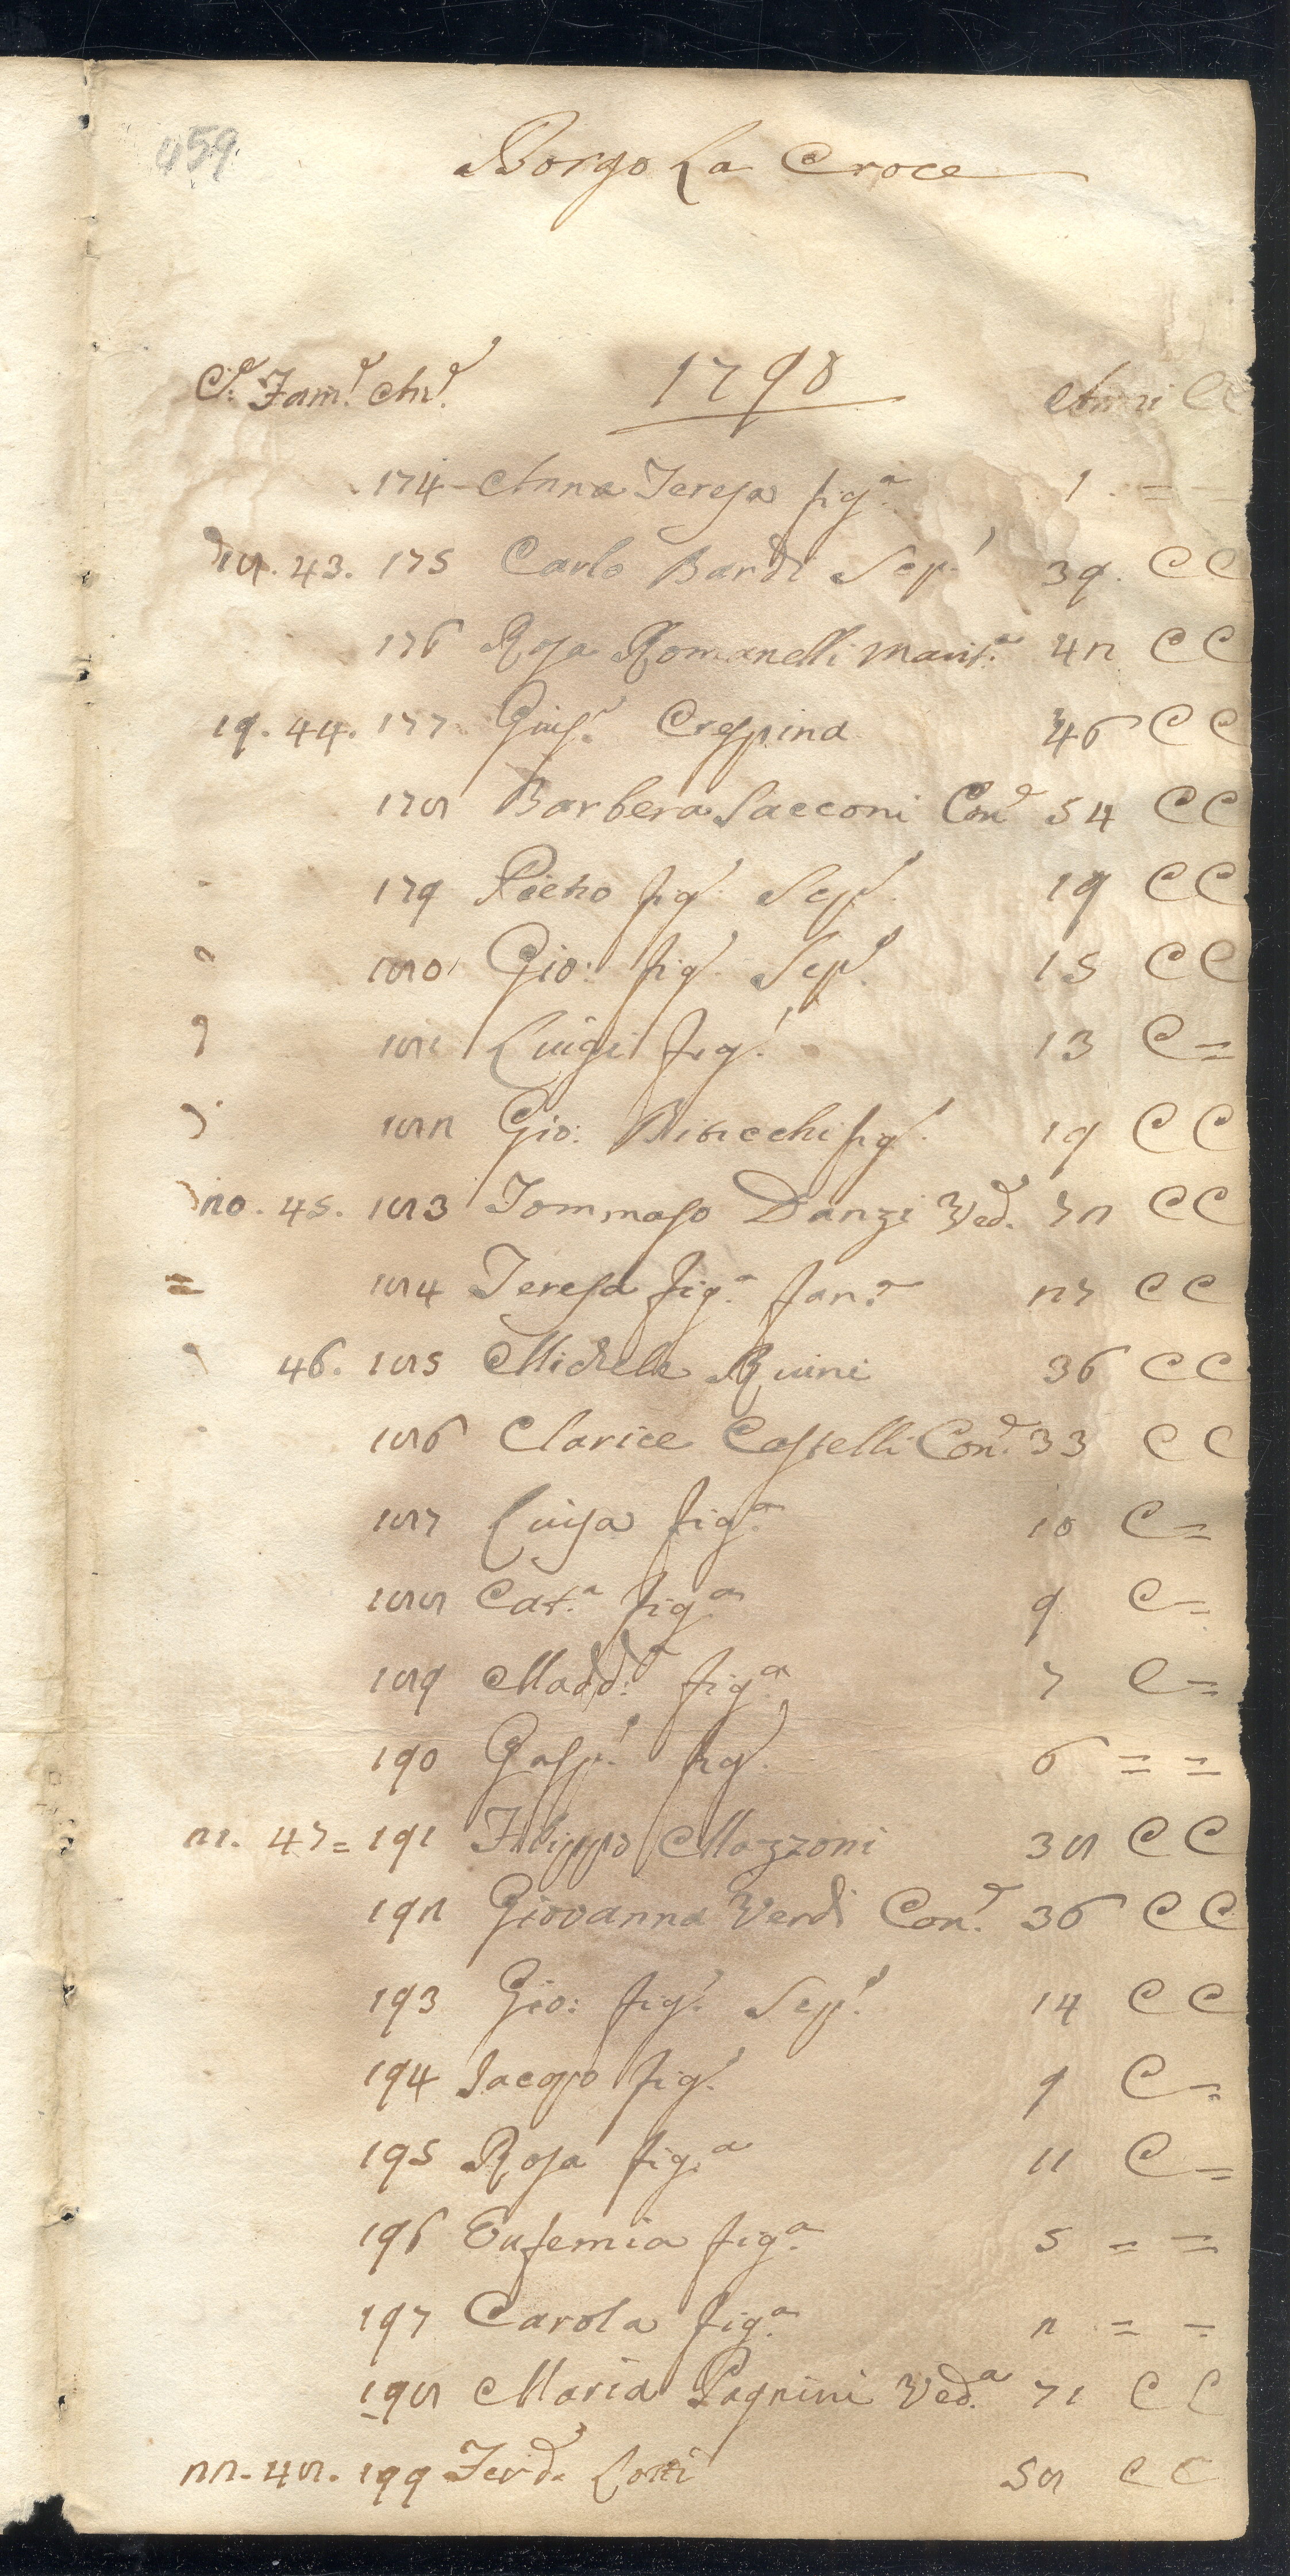 459
Borgo La Croce
C.e Fam.e An.e 1798 Anni CC
174 - Anna Teresa fig.a 1 = =
18. 43. 175 Carlo Bardi Sep.o 39. C C
176 Rosa Romanelli Marit.a 42 C C
19. 44. 177 Gius.e Crespina 46 C C
178 Barbera Sacconi Con.e 54 C C
179 Pietro fig.o Sep.o 19 C C
180 Gio: fig.o Sep.o 15 C C
181 Luigi fig.o 13 C =
182 Gio: fig.o 19 C C
20. 45. 183 Tommaso Danzi Ved.o 72 C C
184 Teresa fig.a fan.a 27 C C
46. 185 Michele Ruini 36 C C
186 Clarice Castelli Con.e 33 C C
187 Luisa fig.a 10 C =
188 Cat.a fig.a 9 C =
189 Madd.a fig.a 7 C =
190 Gasp.o fig.o 6 = =
21. 47 = 191 Filippo Mazzoni 38 C C
192 Giovanna Verdi Con.e 36 C C
193 Gio: fig.o Sep.o 14 C C
194 Jacopo fig.o 9 C =
195 Rosa fig.a 11 C =
196 Eufemia fig.a 5 = =
197 Carola fig.a 2 = =
198 Maria Pagnini Ved.a 71 C C
22. 48. 199 Ferd.o Lotti 58 C C